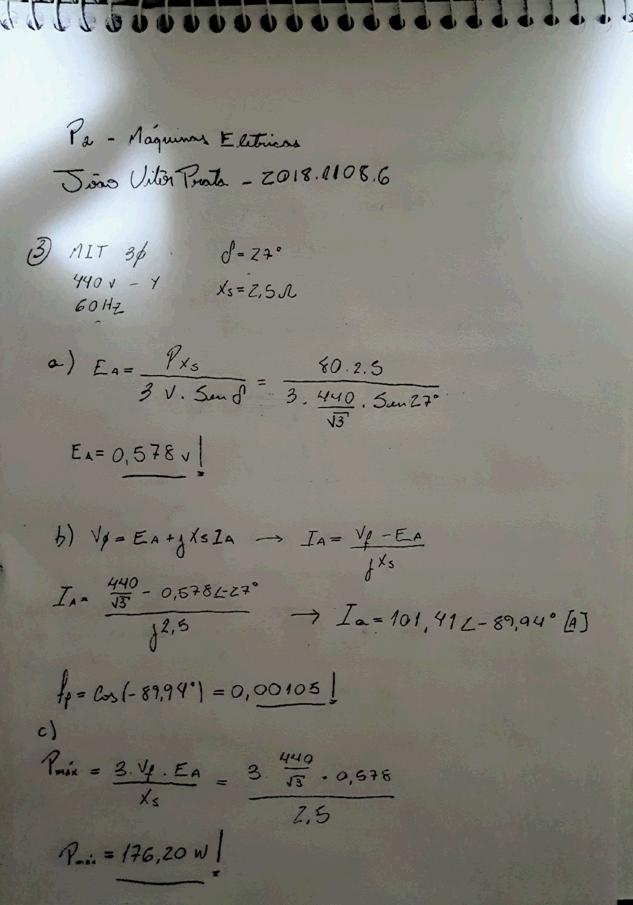 P2 - Máquinas Eletricas
João Vitor Prata - 2018.1108.6
③ MIT 3ϕ δ = 27°
440 v - Y Xs = 2,5 Ω
60 Hz
a) EA = PXs / 3 V. Sen δ = 80.2.5 / 3. 440/√3 . Sen 27°
EA = 0,578 v!
b) Vϕ = EA + j Xs IA → IA = Vϕ - EA / j Xs
IA = 440/√3 - 0,578∠-27° / j 2,5 → Ia = 101,41∠-89,94° [A]
fp = Cos(-89,94°) = 0,00105!
c)
Pmáx = 3. Vϕ. EA / Xs = 3 440/√3 . 0,578 / 2,5
Pmáx = 176,20 W!